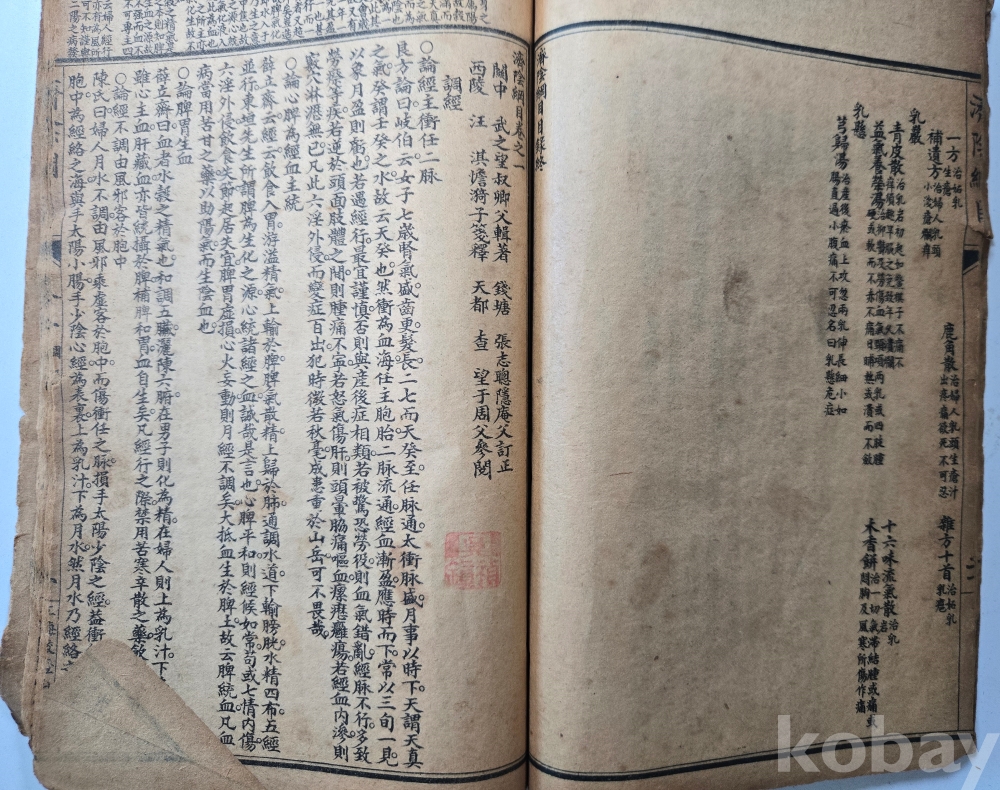 一方 治妬乳生瘡
鹿角散 治婦人乳頭生瘡汁出疼痛欲死不可忍
雜方十首 治妬乳乳癰
補遺方 治婦人乳頭小淺瘡爛癢
乳巖
十六味流氣散 治乳岩
青皮散 治乳岩初起如鱉棋子不痛不癢須趁早服之免致年久潰爛
木香餅 治一切氣滯結腫或痛或閃肭及風寒所傷作痛
益氣養榮湯 治抑鬱及勞傷血氣頸項兩乳或四肢腫硬或軟而不赤不痛日晡熱或潰而不斂
乳懸
芎歸湯 治產後瘀血上攻忽兩乳伸長細小如腸直過小腹痛不可忍名曰乳懸危症
濟陰綱目目錄終
濟陰綱目卷之一
關中 武之望叔卿父輯著 錢塘 張志聰隱庵父訂正
西陵 汪 淇憺漪子箋釋 天都 查 望于周父參閱
調經
○論經主衝任二脉
良方論曰岐伯云女子七歲腎氣盛齒更髮長二七而天癸至任脉通太衝脉盛月事以時下天謂天真
之氣癸謂壬癸之水故云天癸也然衝為血海任主胞胎二脉流通經血漸盈應時而下常以三旬一見
以象月盈則虧也若遇經行最宜謹慎否則與產後症相類若被驚恐勞役則血氣錯亂經脉不行多致
勞瘵等疾若逆於頭面肢體之間則腫痛不寧若怒氣傷肝則頭暈脇痛嘔血瘰癧癰瘍若經血內滲則
竅穴淋瀝無已凡此六淫外侵而變症百出犯時微若秋毫成患重於山岳可不畏哉
○論心脾為經血主統
薛立齋云經云飲食入胃游溢精氣上輸於脾脾氣散精上歸於肺通調水道下輸膀胱水精四布五經
並行東垣先生所謂脾為生化之源心統諸經之血誠哉是言也心脾平和則經候如常苟或七情內傷
六淫外侵飲食失節起居失宜脾胃虛損心火妄動則月經不調矣大抵血生於脾土故云脾統血凡血
病當用苦甘之藥以助陽氣而生陰血也
○論脾胃生血
薛立齋曰血者水穀之精氣也和調五臟灑陳六腑在男子則化為精在婦人則上為乳汁下
雖心主血肝藏血亦皆統攝於脾補脾和胃血自生矣凡經行之際禁用苦寒辛散之藥飲
○論經不調由風邪客於胞中
陳氏曰婦人月水不調由風邪乘虛客於胞中而傷衝任之脉損手太陽少陰之經蓋衝
胞中為經絡之海與手太陽小腸手少陰心經為表裏上為乳汁下為月水然月水乃經絡之
kobay